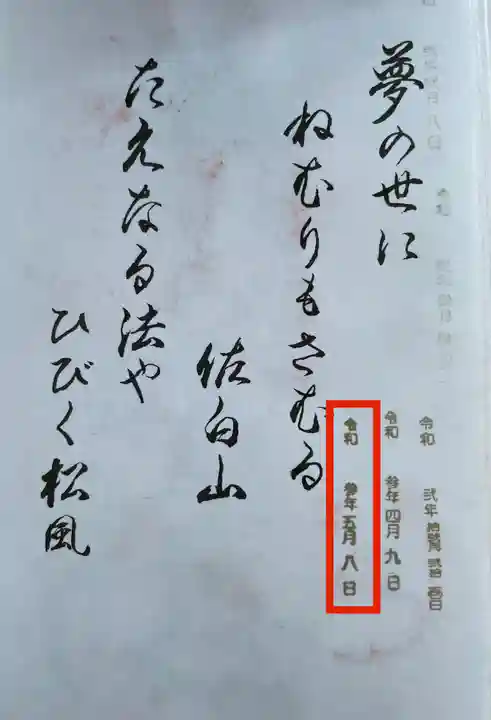 夢の世に
ねむりもさむる
佐白山
たえなる法や
ひびく松風
令和 弐年 拾弐月 弐拾壱日
令和 参年四月九日
令和 参年五月八日